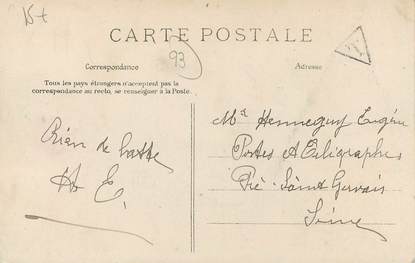 15 +
CARTE POSTALE
93
T
Correspondance
Adresse
Tous les pays étrangers n'acceptent pas la
correspondance au recto, se renseigner à la Poste.
Mr Henneguy Eugène
Postes et Télégraphes
Pré-Saint Gervais
Seine
Rien de
E.